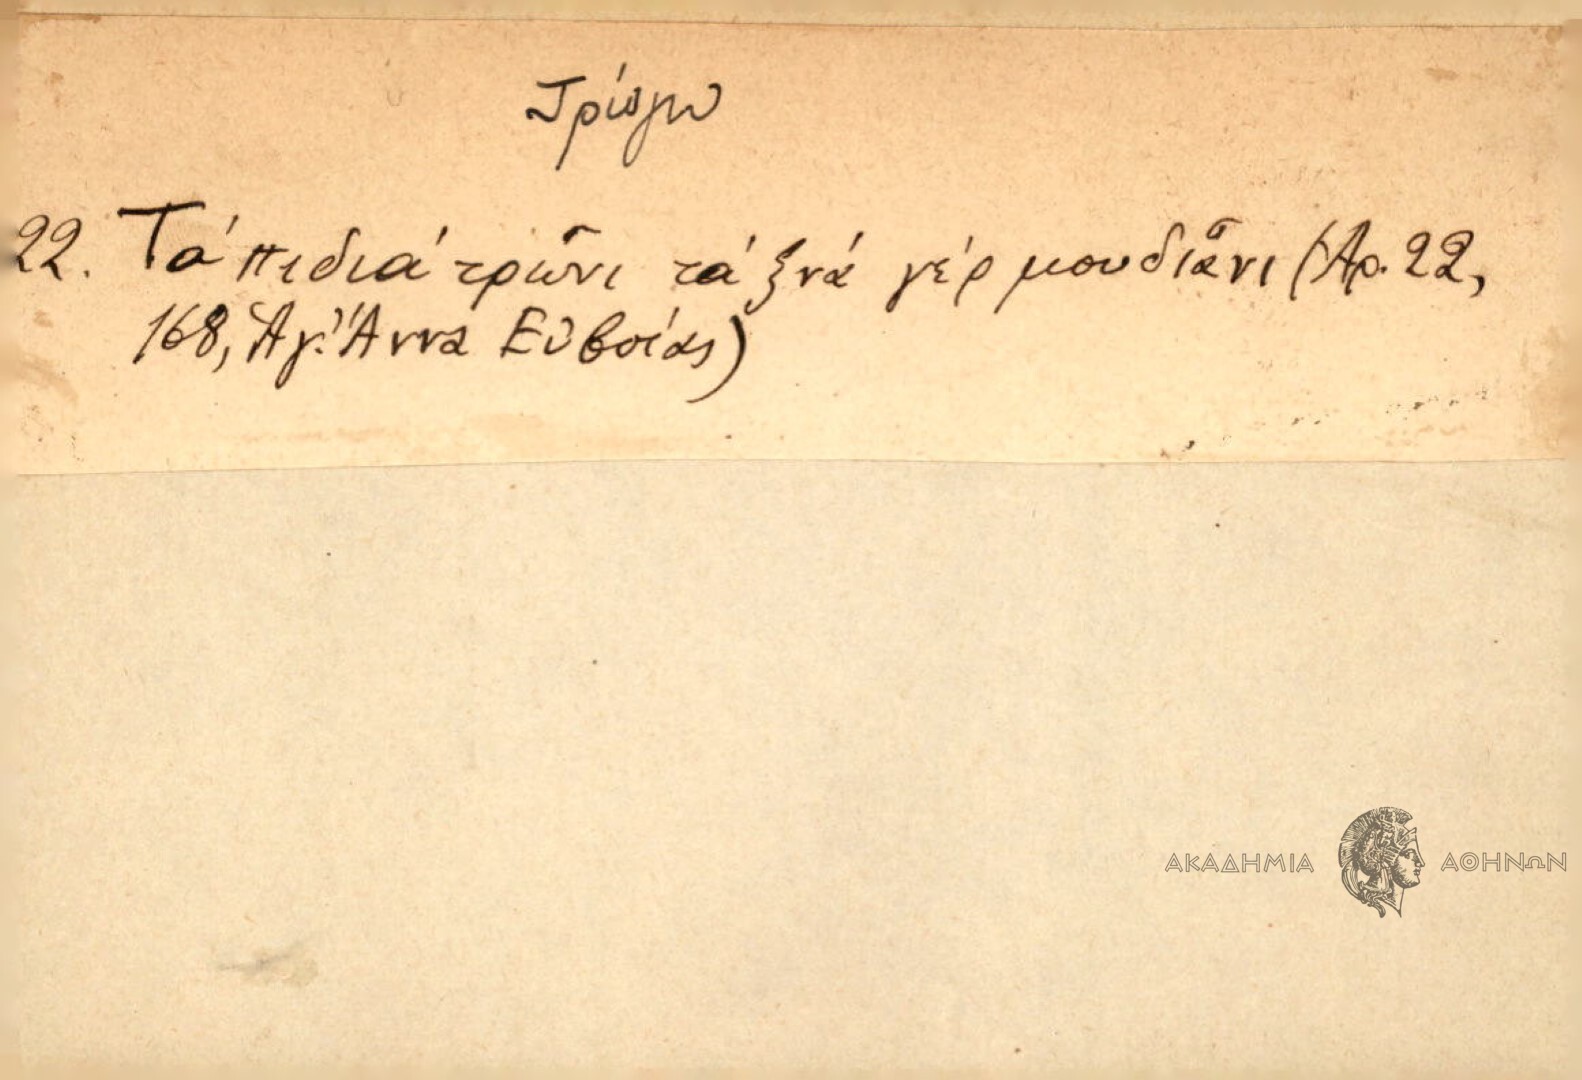 τρώγω
22. Τά πιδιά τρῶνι τά ξνά γέρ μουδιᾶνι (Αρ. 22,
168, Ἁγ. Ἄννα Εὐβοίας)
ΑΚΑΔΗΜΙΑ ΑΘΗΝΩΝ